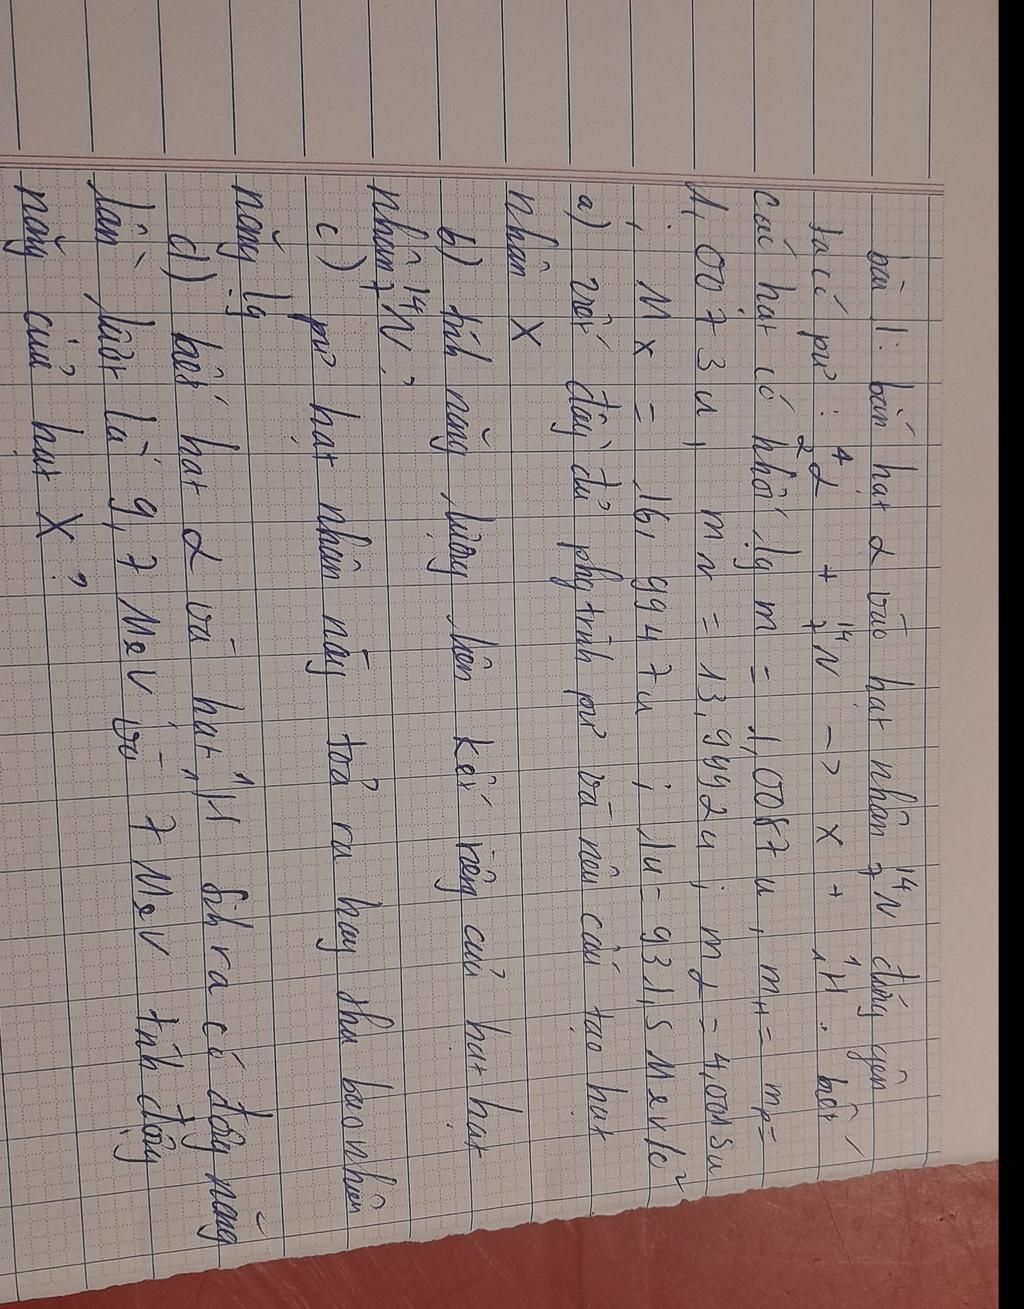 bài 1: bắn hạt α vào hạt nhân ¹⁴₇N đứng yên
ta có pư: ⁴₂α + ¹⁴₇N -> X + ¹₁H. biết
các hạt có khối lg m = 1,0087u, mH = mp =
1,0073u, mN = 13,9992u; mα = 4,0015u
; Mx = 16,9947u; 1u = 931,5 Mev/c²
a) viết đầy đủ phg trình pư và nêu cấu tạo hạt
nhân X
b) tính năng lượng liên kết riêng của hạt hạt
nhân ¹⁴₇N?
c) pư hạt nhân này toả ra hay thu bao nhiêu
năng lg
d) biết hạt α và hạt ¹₁H sinh ra có động năng
lần lượt là 9,7 MeV và 7 MeV tính động
năng của hạt X?